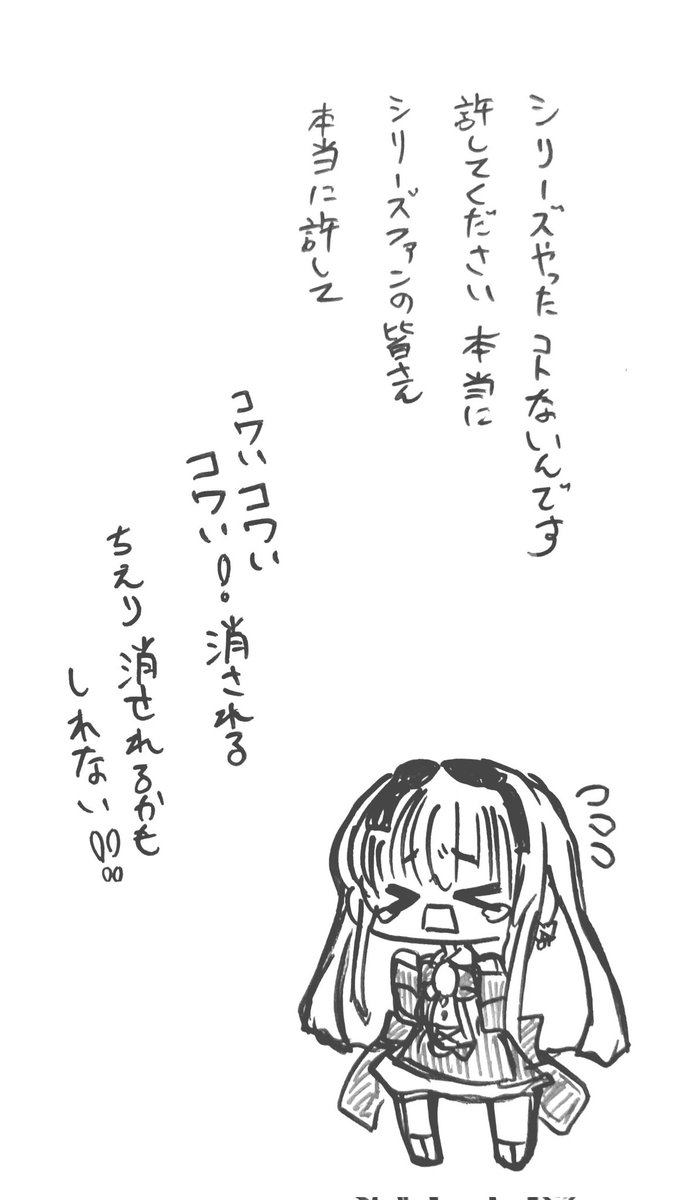 シリーズやったコトないんです
許してください 本当に
シリーズファンの皆さん
本当に許して
コワいコワい
コワい！消される
ちえり消せれるかも
しれない！！